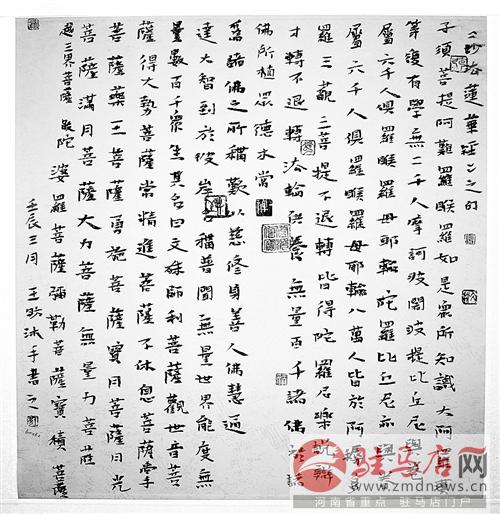 妙法蓮華經
子須菩提阿難羅睺羅如是眾所知識大阿羅漢
等復有學無二千人摩訶波闍波提比丘尼與眷
屬六千人俱羅睺羅母耶輸陀羅比丘尼亦與眷
屬六千人俱羅睺羅母耶輸八萬人皆於阿耨多
羅三藐三菩提不退轉皆得陀羅尼樂說辯
才轉不退轉法輪供養無量百千諸佛於諸
佛所植眾德本常
為諸佛之所稱歎以慈修身善入佛慧通
達大智到於彼岸名稱普聞無量世界能度無
量數百千眾生其名曰文殊師利菩薩觀世音菩
薩得大勢菩薩常精進菩薩不休息菩薩掌
菩薩藥王菩薩勇施菩薩寶月菩薩月光
菩薩滿月菩薩大力菩薩無量力菩薩
越三界菩薩跋陀婆羅菩薩彌勒菩薩寶積菩薩
壬辰三月王沐手書之
驻马店网
www.zmdnews.cn
河南省重点 驻马店门户